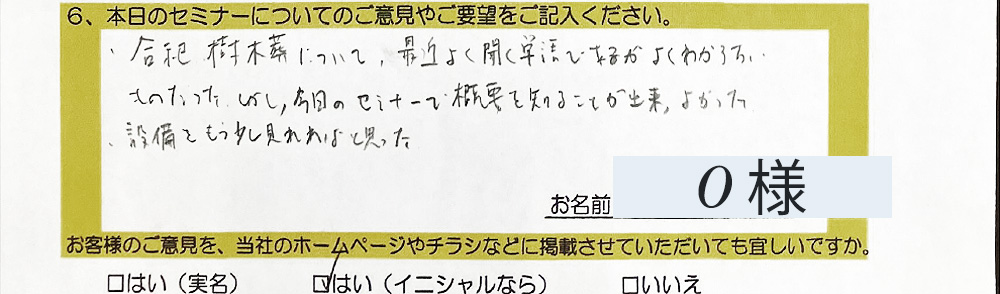 6、本日のセミナーについてのご意見やご要望をご記入ください。
・合祀 樹木葬について、最近よく聞く単語であるが よくわからない
ものだった しかし、今日のセミナーで概要を知ることが出来、よかった
・設備をもう少し見れればと思った
お名前 O 様
お客様のご意見を、当社のホームページやチラシなどに掲載させていただいても宜しいですか。
□はい（実名） ☑はい（イニシャルなら） □いいえ